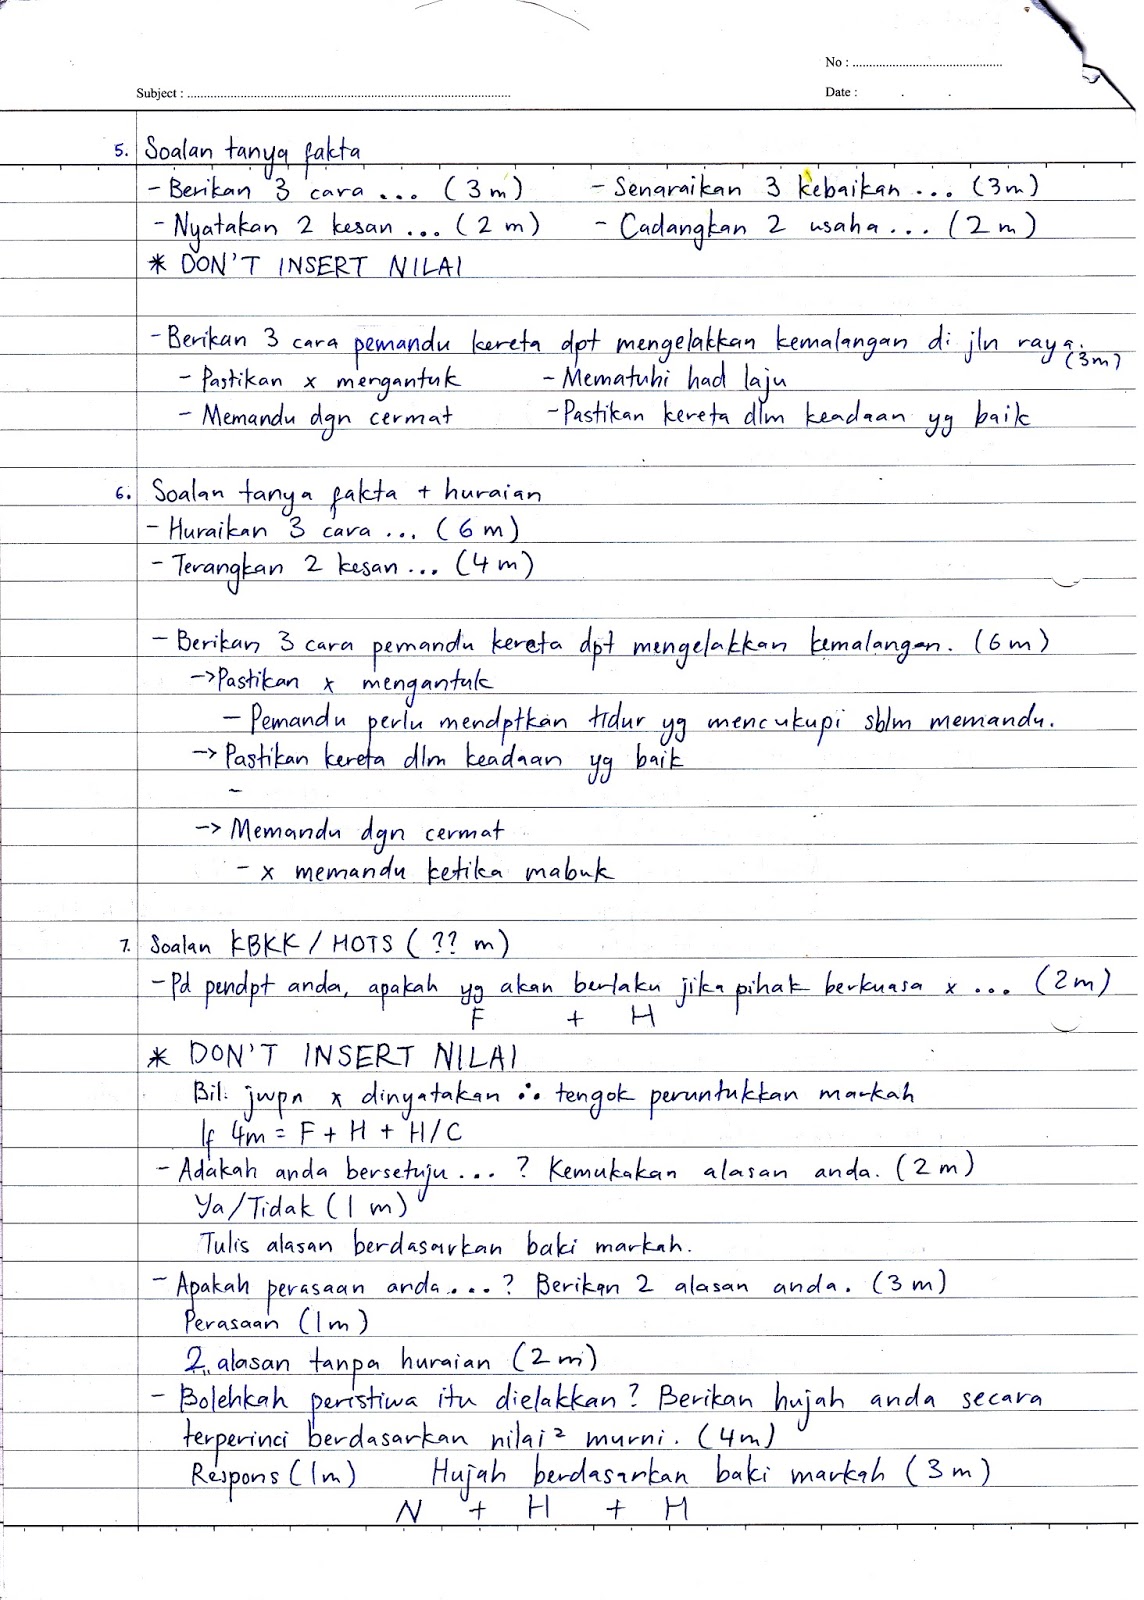 No : ..........................................
Subject : ..........................................................................................
Date : . .
5. Soalan tanya fakta
- Berikan 3 cara ... (3m) - Senaraikan 3 kebaikan ... (3m)
- Nyatakan 2 kesan ... (2 m) - Cadangkan 2 usaha ... (2m)
* DON'T INSERT NILAI
- Berikan 3 cara pemandu kereta dpt mengelakkan kemalangan di jln raya. (3m)
- Pastikan x mengantuk - Mematuhi had laju
- Memandu dgn cermat - Pastikan kereta dlm keadaan yg baik
6. Soalan tanya fakta + huraian
- Huraikan 3 cara ... (6 m)
- Terangkan 2 kesan ... (4m)
- Berikan 3 cara pemandu kereta dpt mengelakkan kemalangan. (6m)
-> Pastikan x mengantuk
- Pemandu perlu mendptkan tidur yg mencukupi sblm memandu.
-> Pastikan kereta dlm keadaan yg baik
-
-> Memandu dgn cermat
- x memandu ketika mabuk
7. Soalan KBKK / HOTS ( ?? m)
- Pd pendpt anda, apakah yg akan berlaku jika pihak berkuasa x ... (2m)
F + H
* DON'T INSERT NILAI
Bil. jwpn x dinyatakan ∴ tengok peruntukkan markah
If 4m = F + H + H/C
- Adakah anda bersetuju ... ? Kemukakan alasan anda. (2m)
Ya/Tidak (1 m)
Tulis alasan berdasarkan baki markah.
- Apakah perasaan anda ... ? Berikan 2 alasan anda. (3m)
Perasaan (1m)
2 alasan tanpa huraian (2m)
- Bolehkah peristiwa itu dielakkan? Berikan hujah anda secara
terperinci berdasarkan nilai² murni. (4m)
Respons (1m) Hujah berdasarkan baki markah (3m)
N + H + H